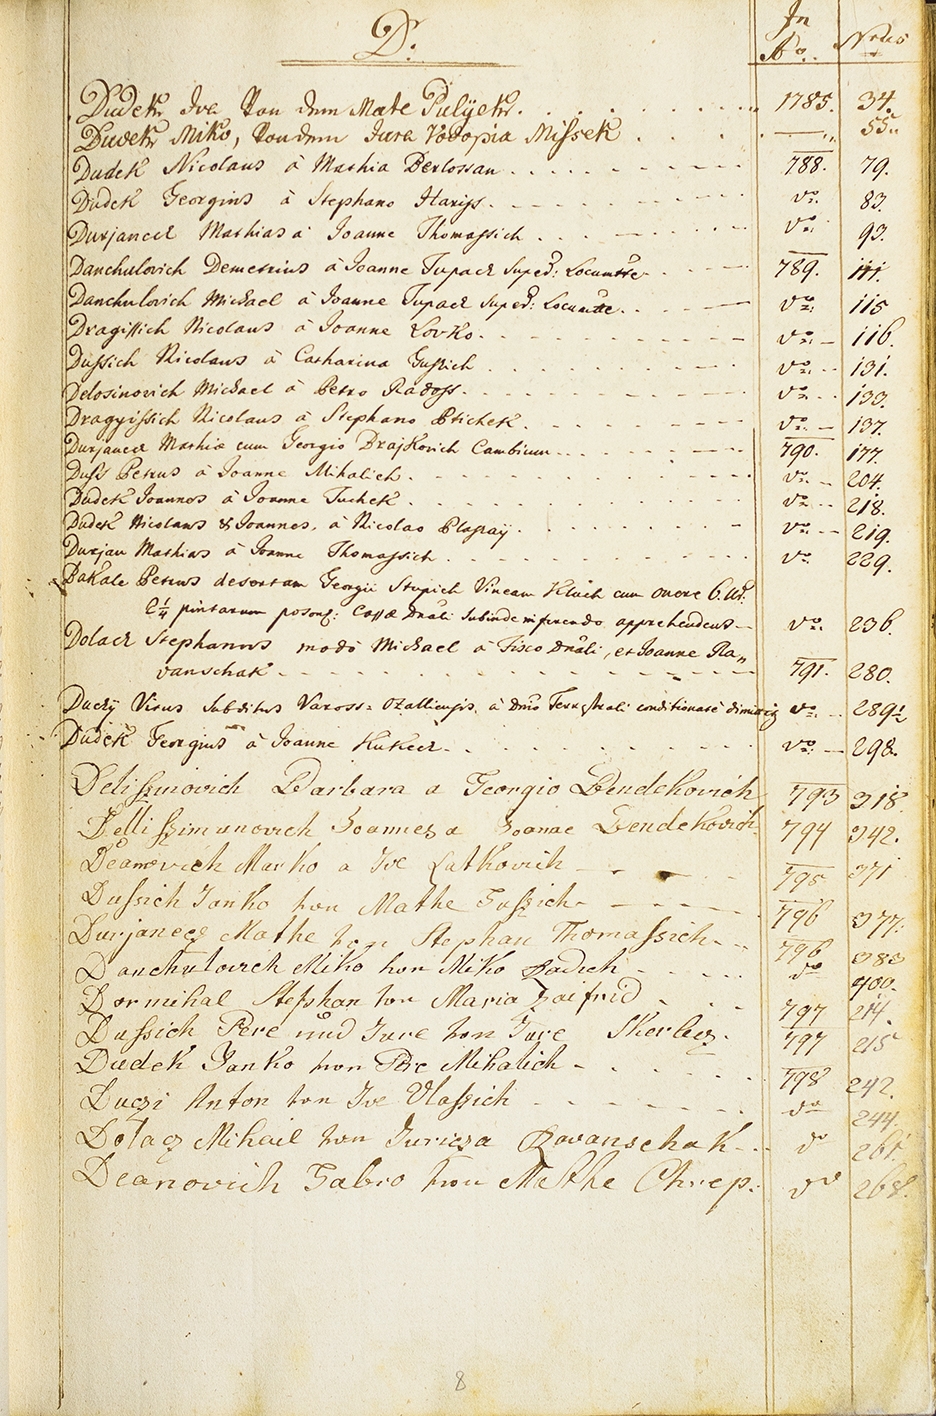 D. In Aō. Nrus
Dudek Ive Von dem Mate Pulyek. 1785. 34.
Dudek Miko, Von dem Jura Vodopia Missek — 55.
Dudek Nicolaus à Mathia Berlossan 788. 79.
Dudek Georgius à Stephano Hariss. do. 83.
Durjanecz Mathias à Joanne Thomassich do. 93.
Danchulovich Demetrius à Joanne Tupacz Suped: 789. 111.
Danchulovich Michael à Joanne Tupacz Suped: do. 115
Dragissich Nicolaus à Joanne Lovko. do. — 116.
Dussich Nicolaus à Catharina Gussich do. 131.
Delosinovich Michael à Petro Radoss. do. 133.
Dragyissich Nicolaus à Stephano Ptichek. do. — 137.
Durjanecz Mathiæ cum Georgio Draskovich Cambium 790. 177.
Duss Petrus à Joanne Mihalich. do. — 204.
Dudek Joannes à Joanne Tuchek do. 218.
Dudek Nicolaus & Joannes, à Nicolao Plassaÿ. do. — 219.
Durjan Mathias à Joanne Thomassich. do. 229.
Dakale Petrus desertam Georgii Stupich Vineam Kluch cum onere 6. Ur.
2¼ pintarum poson: Cassæ Dnāli Subinde inferendo apprehendens — do. 236.
Dolacz Stephanus modò Michael à Fisco Dnāli, et Joanne Ra„
vanschak 791. 280.
Duczÿ Vitus Subditus Vaross- Ozalliensis à Dnō Terrestrali do. 289½
Dudek Georgius à Joanne Kukecz do. — 298.
Delissimovich Barbara a Georgio Bendekovich 793 318
Dellissimunovich Joannes a Joanne Bendekovich 794 342.
Deanovich Marko a Ive Latkovich 795 371
Dussich Janko von Mathe Gussich 796 377.
Durjanecz Mathe von Stephan Thomassich 796 383
Danchulovich Miko von Miko Radich do 400.
Dormihal Stephan von Maria 797 214.
Dussich Pere und Jure von Jure Skerlecz. 797 215
Dudek Janko von Pere Mihalich 798 242.
Duczi Anton von Ive Vlassich do 244.
Dolacz Mihail von Juricza Ravanschak do 261.
Deanovich Gabro von Mathe Chrep. do 268.
8